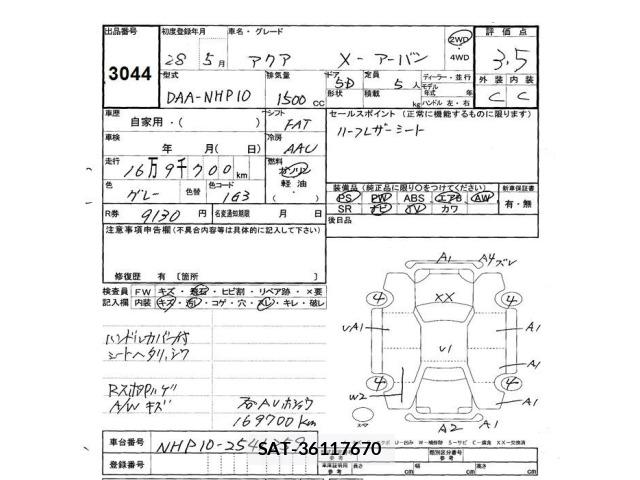 出品番号 3044
初度登録年月 28 5月
車名・グレード アクア X-アーバン
2WD ・4WD
評価点 3.5
外装 C 内装 C
型式 DAA-NHP10
排気量 1500 CC
ドア 5D 形状
定員 5人 積載 kg
ディーラー・並行
モデル年式 年
ハンドル 左・右
車歴 自家用・( )
シフト FAT
セールスポイント (正常に機能するものに限ります)
ハーフレザーシート
車検 年 月(日)
冷房 AAC
走行 16万9千700km
燃料 ガソリン 軽油・( )
色 グレー 色替
色コード 1G3
装備品(純正品に限り○をつけてください) 新車保証書
PS PW ABS エアB AW 有・無
SR ナビ TV カワ
R券 9130円
名変通知期限 月 日
後日品
注意事項申告欄(不具合内容等は具体的に記入して下さい)
修復歴 有 [箇所 ]
検査員記入欄 FW キズ・飛石・ヒビ割・リペア跡・×要
内装 キズ・汚レ・コゲ・穴・スレ・キレ・破レ
ハンドルカバー付
シートヘタリ、シワ
A/W キズ
169700km
A1 A4 ズレ
4 XX 4
UA1 A1
U1
A1
4 4
W2 A1
A2 A1
スペア
車台番号 NHP10-254
登録番号
SAT-36117670
U・凹み W・補修跡 S・サビ C・腐食 XX・交換済
車体証明用参考
類別区分番号参考
長さ cm 幅 cm 高さ cm